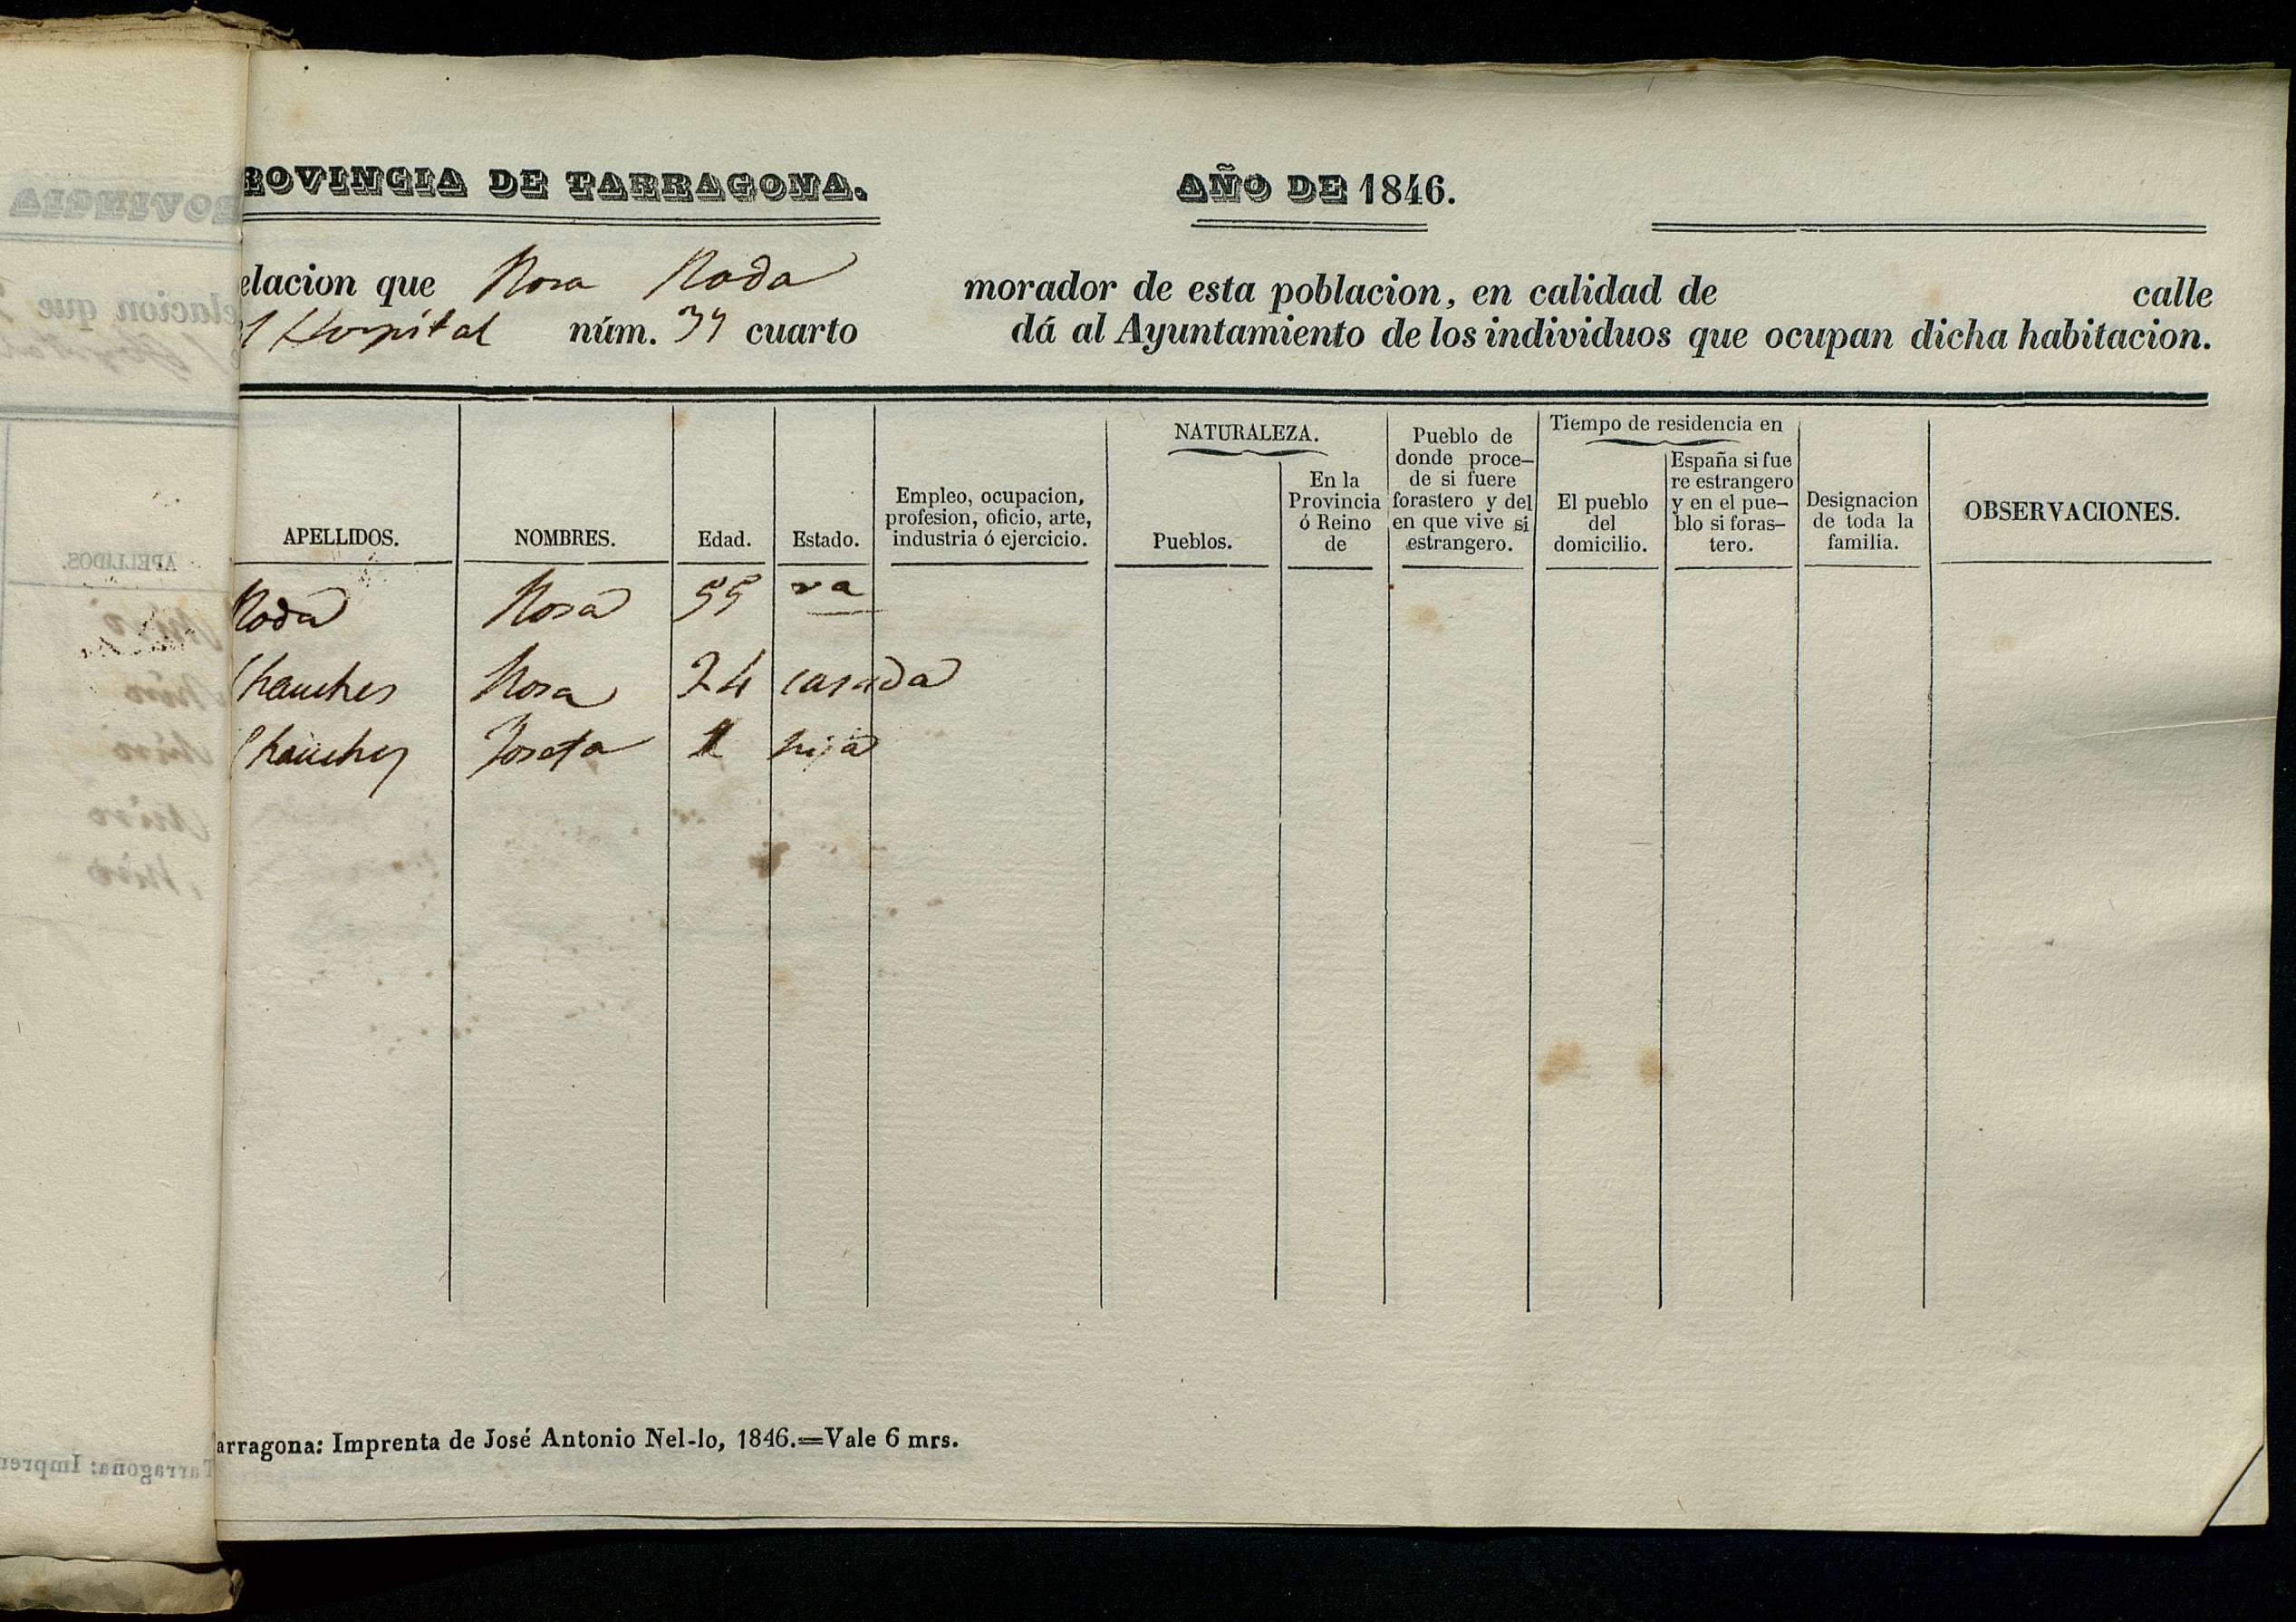 ROVINCIA DE TARRAGONA. AÑO DE 1846.
elacion que Rosa Roda morador de esta poblacion, en calidad de calle
l Hospital núm. 39 cuarto dá al Ayuntamiento de los individuos que ocupan dicha habitacion.
APELLIDOS.
NOMBRES.
Edad.
Estado.
Empleo, ocupacion,
profesion, oficio, arte,
industria ó ejercicio.
NATURALEZA.
Pueblos.
En la
Provincia
ó Reino
de
Pueblo de
donde proce-
de si fuere
forastero y del
en que vive si
estrangero.
Tiempo de residencia en
El pueblo
del
domicilio.
España si fue
re estrangero
y en el pue-
blo si foras-
tero.
Designacion
de toda la
familia.
OBSERVACIONES.
Roda Rosa 55 va
Rosa 24 casada
Josefa 1 hija
arragona: Imprenta de José Antonio Nel-lo, 1846.=Vale 6 mrs.